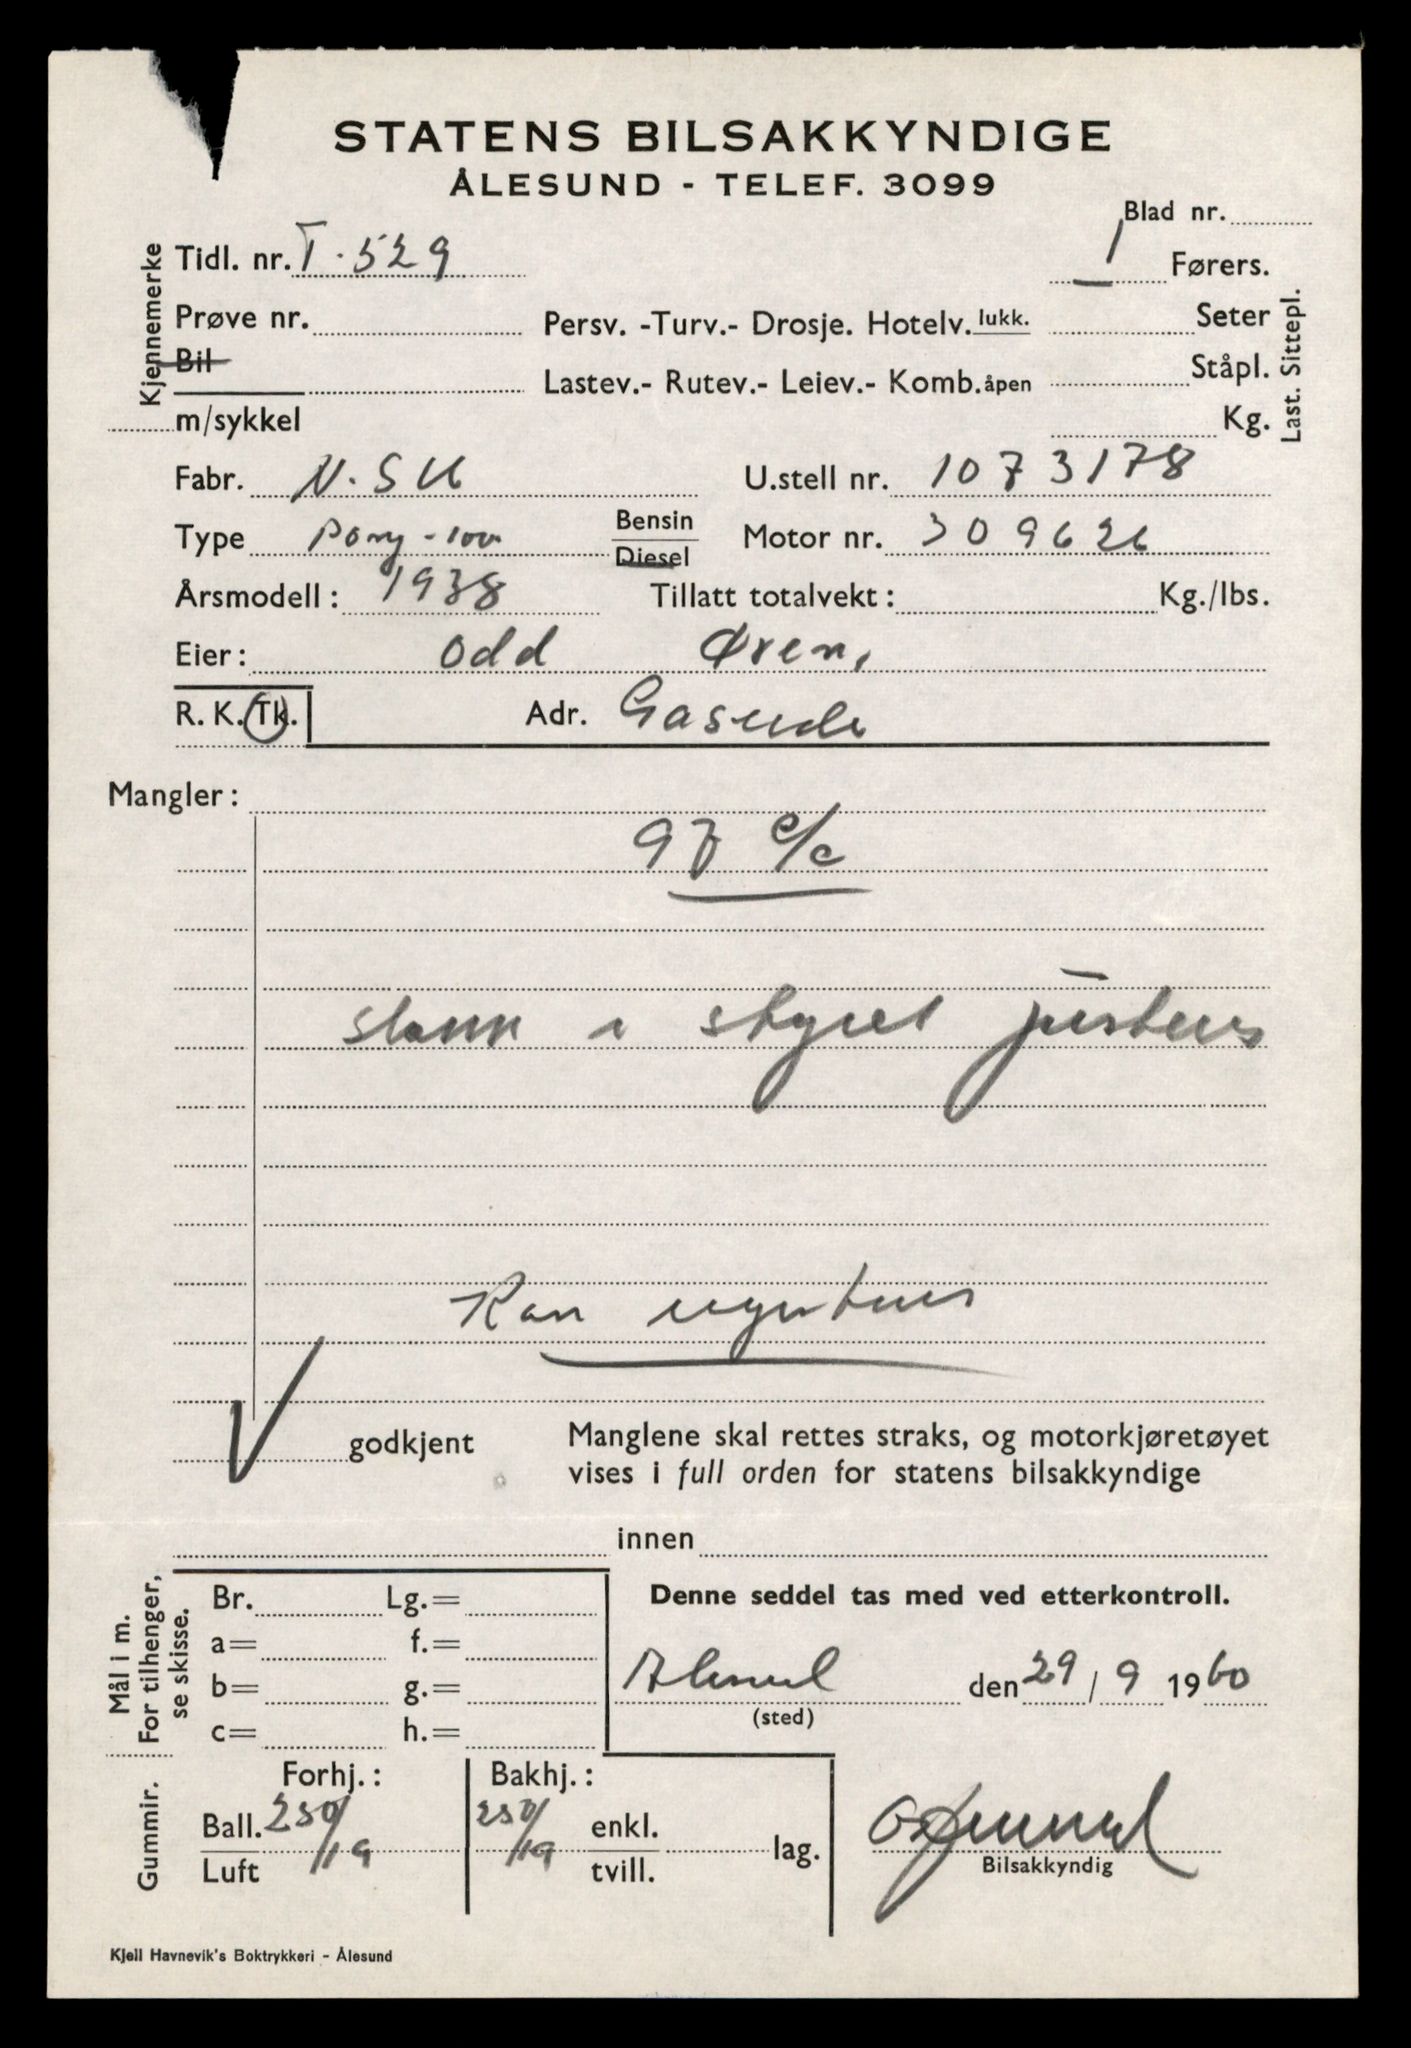 STATENS BILSAKKYNDIGE
ÅLESUND - TELEF. 3099
Blad nr.
Kjennemerke
Tidl. nr. T-529
1 Førers.
Prøve nr.
Persv. -Turv.- Drosje. Hotelv. lukk.
Seter
Bil
Lastev.- Rutev.- Leiev.- Komb. åpen
Ståpl.
m/sykkel
Kg.
Last. Sittepl.
Fabr. N.S.U
U.stell nr. 1073178
Type Pony-100
Bensin
Diesel
Motor nr. 309626
Årsmodell: 1938
Tillatt totalvekt: Kg./lbs.
Eier: Odd Øren,
R. K. Tk.
Adr.
Mangler:
97 c/c
Slakk i styret justeres
Kan registreres
godkjent
Manglene skal rettes straks, og motorkjøretøyet
vises i full orden for statens bilsakkyndige
innen
Mål i m.
For tilhenger,
se skisse.
Br. Lg.=
a= f.=
b= g.=
c= h.=
Denne seddel tas med ved etterkontroll.
Ålesund den 29/9 1960
(sted)
Gummir.
Forhj.:
Bakhj.:
Ball. 250/19
Luft
250/19
enkl.
tvill.
lag.
Bilsakkyndig
Kjell Havnevik's Boktrykkeri - Ålesund